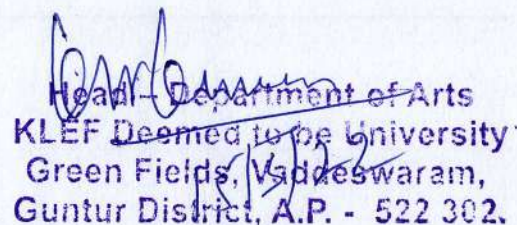 Head - Department of Arts
KLEF Deemed to be University
Green Fields, Vaddeswaram,
Guntur District, A.P. - 522 302.